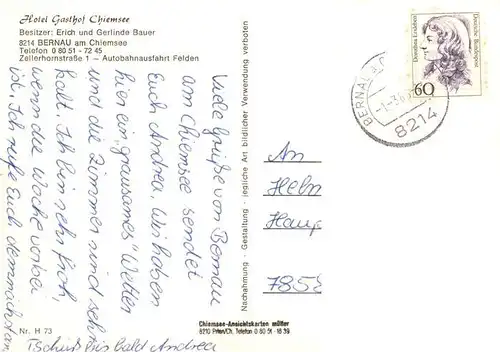 Hotel Gasthof Chiemsee
Besitzer: Erich und Gerlinde Bauer
8214 BERNAU am Chiemsee
Telefon 0 80 51 - 72 45
Zellerhornstraße 1 – Autobahnausfahrt Felden
Viele Grüße von Bernau
am Chiemsee sendet
Euch Andrea. Wir haben
hier ein "grausames" Wetter
und die Zimmer sind sehr
kalt. Ich bin sehr froh,
wenn die Woche vorbei
ist. Ich rufe Euch demnächst an
Tschüß bis bald Andrea
Nr. H 73
Nachahmung - Gestaltung - jegliche Art bildlicher Verwendung verboten
Chiemsee-Ansichtskarten müller
8210 Prien/Ch. Telefon 0 80 51 - 16 39
Dorothea Erxleben
Deutsche Bundespost
60
BERNAU
8214
An
Helm
Haup
7858